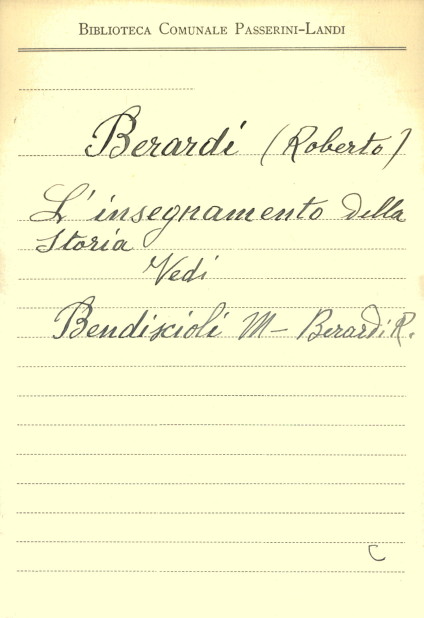 BIBLIOTECA COMUNALE PASSERINI-LANDI
Berardi (Roberto)
L'insegnamento della
Storia
Vedi
Bendiscioli M - Berardi R.
C